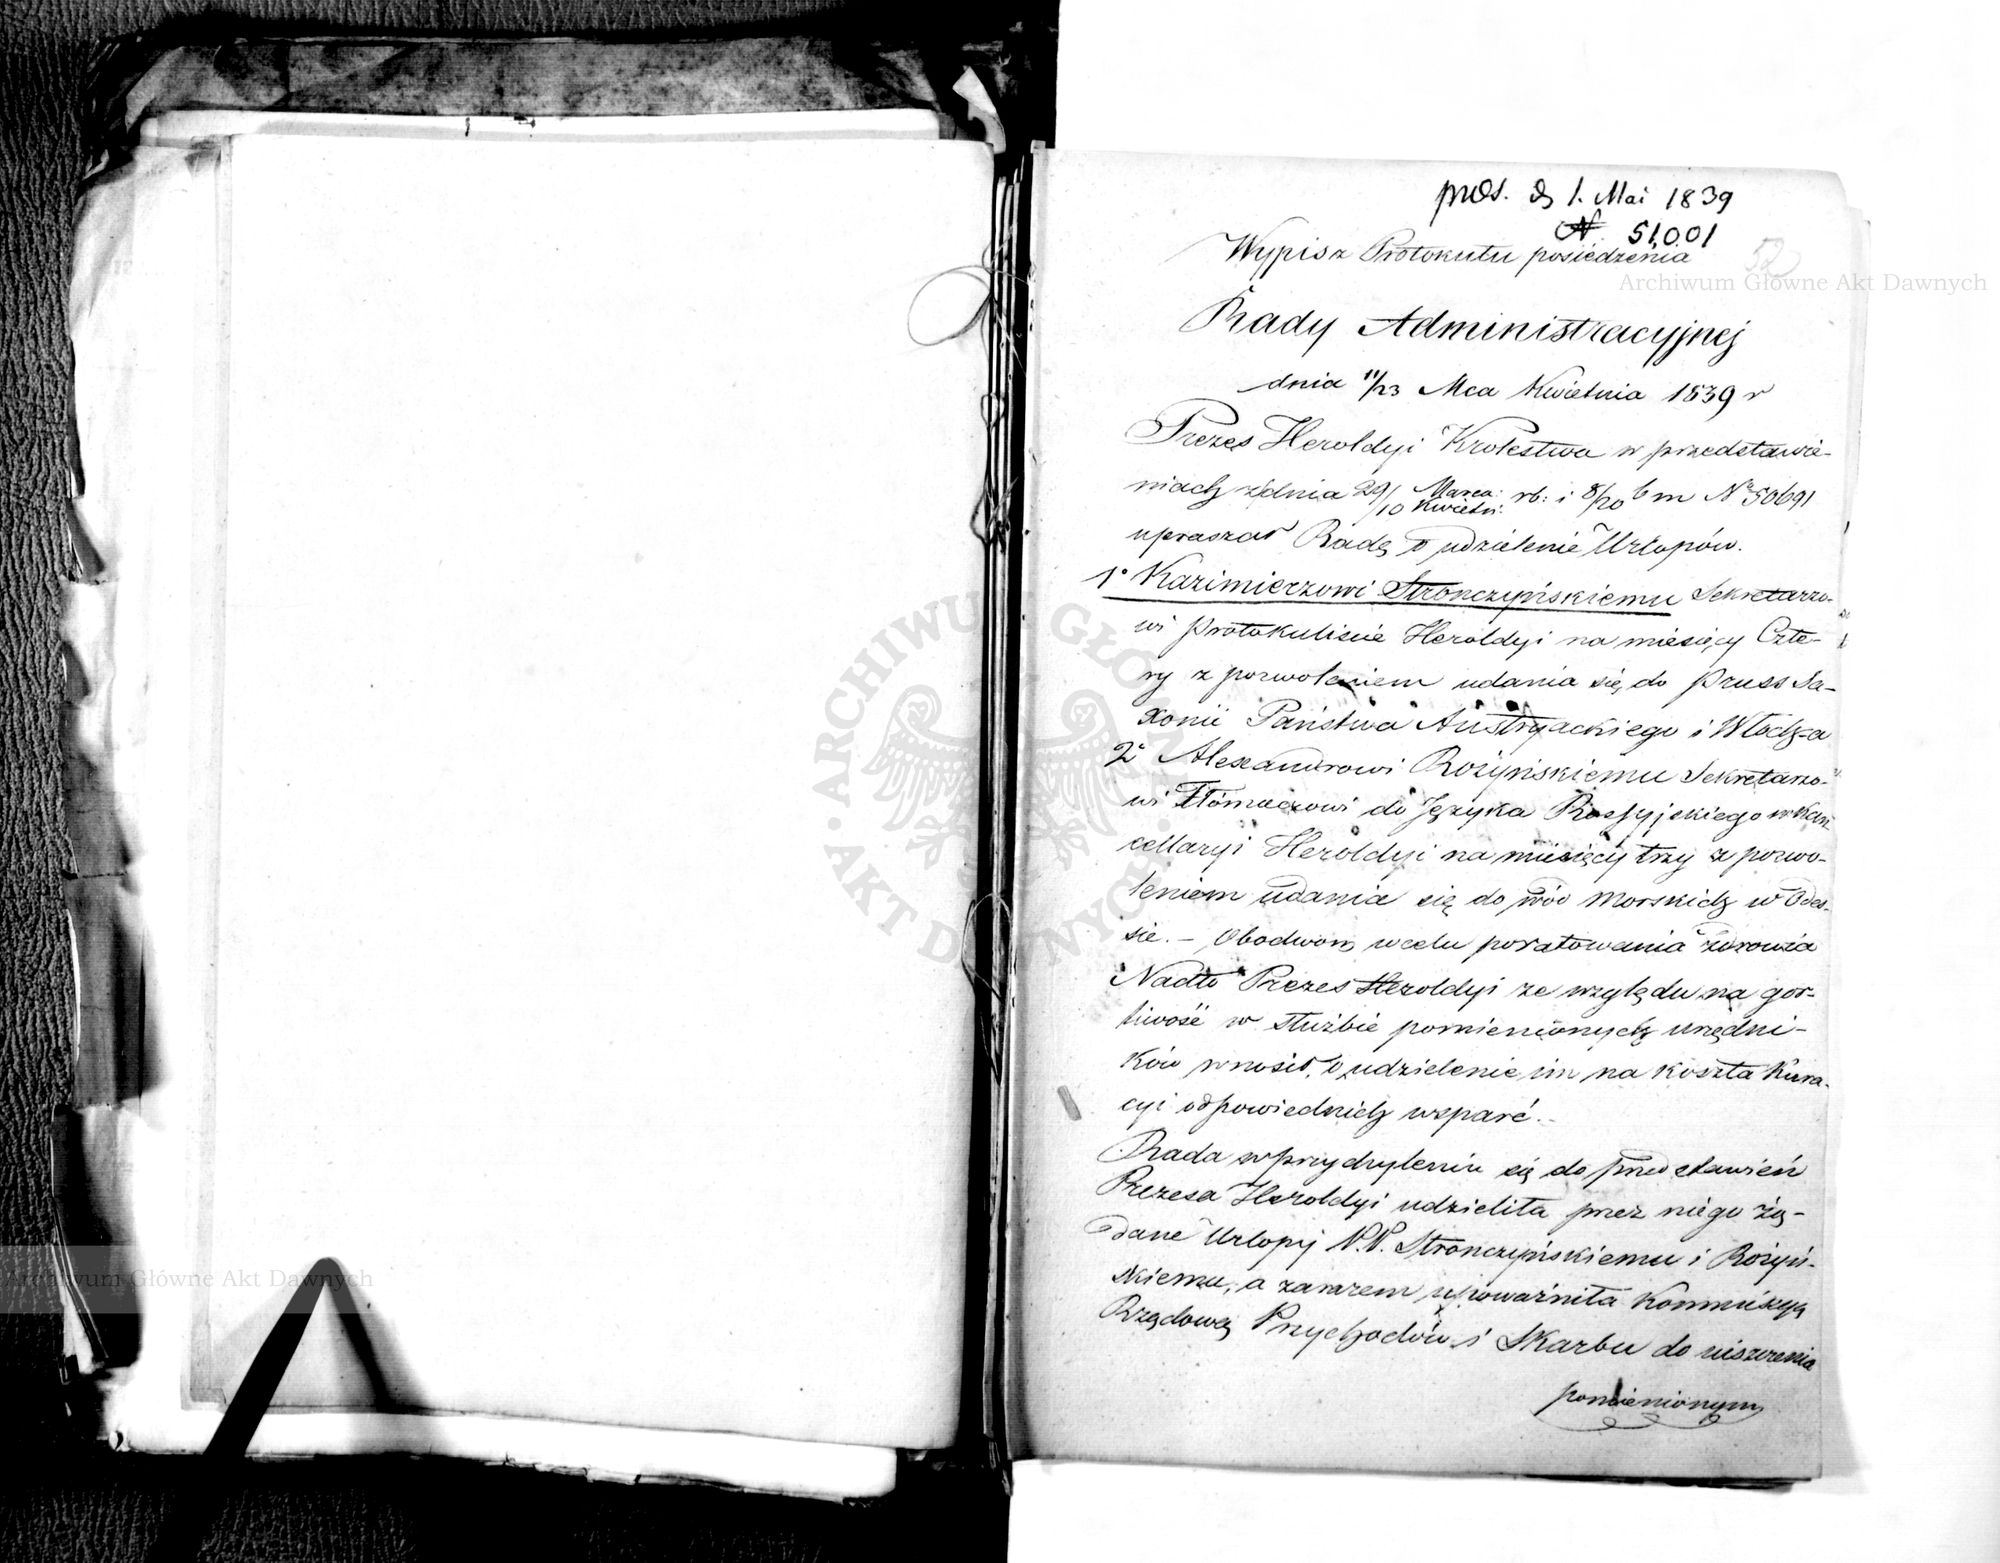 pres. d 1. Mai 1839
N. 51,001
52
Wypis z Protokułu posiedzenia
Rady Administracyjnej
dnia 11/23 Mca Kwietnia 1839 r
Prezes Heroldyi Krolestwa w przedstawie-
niach z dnia 29/10 Marca/Kwietn: rb: i 8/20 b m Nr 50691
upraszał Radę o udzielenie Urlopów.
1° Kazimierzowi Stronczyńskiemu Sekretarzo-
wi Protokuliście Heroldyi na miesięcy Czte-
ry z pozwoleniem udania się do Pruss Sa-
xonii Państwa Austryackiego i Włoch, a
2° Alexandrowi Rożyńskiemu Sekretarzo-
wi Tłómaczowi do Języka Rossyjskiego w Kan
cellaryi Heroldyi na miesięcy trzy z pozwo-
leniem udania się do wód morskich w Odes-
sie. – Obodwom w celu poratowania zdrowia
Nadto Prezes Heroldyi ze względu na gor-
liwość w służbie pomienionych urzędni-
ków wnosił, o udzielenie im na koszta Kura-
cyi odpowiednich wsparć. –
Rada w przychyleniu się do przedstawień
Prezesa Heroldyi udzieliła przez niego żą-
dane Urlopy P.P. Stronczyńskiemu i Rożyń-
skiemu, a zarazem upoważniła Kommissyą
Rządową Przychodów i Skarbu do uiszczenia
pomienionym
Archiwum Główne Akt Dawnych
Archiwum Główne Akt Dawnych
ARCHIWUM GŁÓWNE · AKT DAWNYCH ·